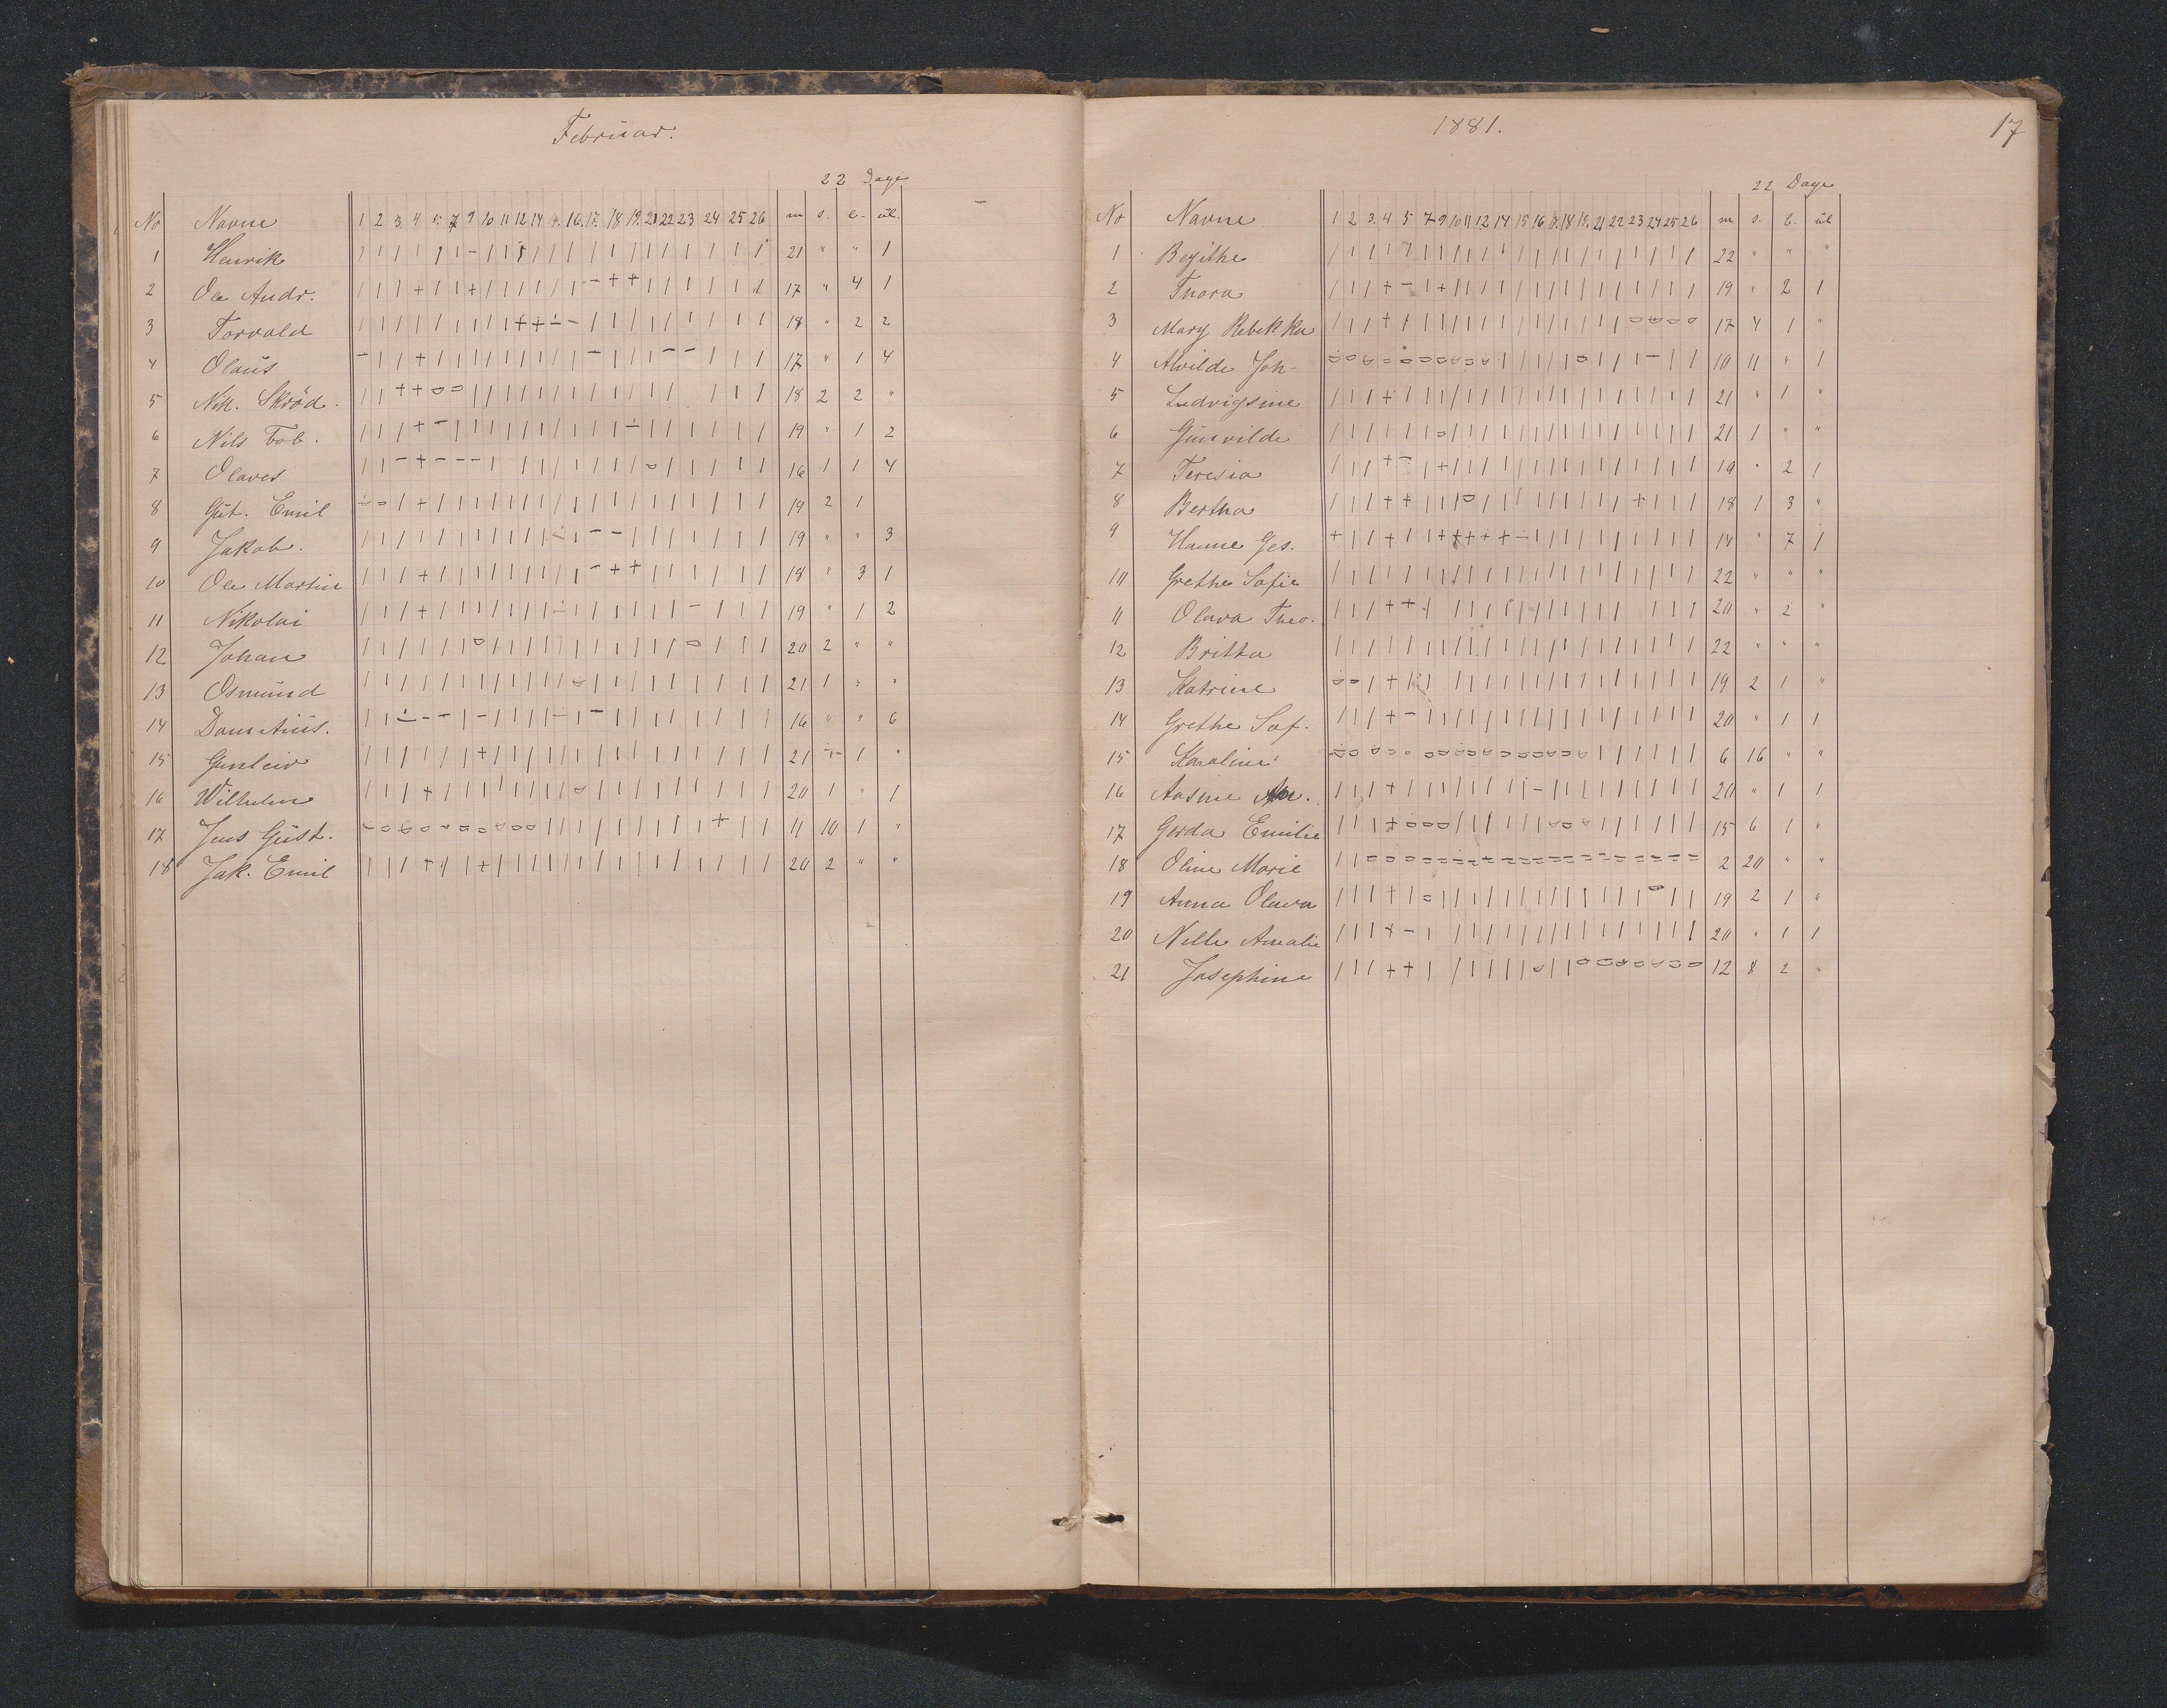 Februar.
22 Dage
No Navne 1 2 3 4 5 7 9 10 11 12 14 15. 16. 17. 18 19. 21 22 23 24 25 26 m s. l. ul.
1 Henrik 21 " " 1
2 Ole Andr. 17 " 4 1
3 Torvald 18 " 2 2
4 Olaus 17 " 1 4
5 Nik. Skröd. 18 2 2 "
6 Nils Tob. 19 " 1 2
7 Olaves 16 1 1 4
8 Gut. Emil 19 2 1
9 Jakob. 19 " " 3
10 Ole Martin 18 " 3 1
11 Nikolai 19 " 1 2
12 Johan 20 2 " "
13 Osmund 21 1 " "
14 16 " " 6
15 Gunleiv 21 1 "
16 Wilhelm 20 1 " 1
17 Jens Gust. 11 10 1 "
18 Jak. Emil 20 2 " "
1881.
17
22 Dage
No Navne 1 2 3. 4 5 7 9 10 11 12 14 15 16 17. 18 19. 21 22 23 24 25 26 m s. l. ul
1 Begithe 22 " " "
2 Thora 19 " 2 1
3 Mary Rebekka 17 4 1 "
4 Alvilde Joh- 10 11 " 1
5 Ludvigsine 21 " 1 "
6 Gunvilde 21 1 " "
7 Teresia 19 " 2 1
8 Bertha 18 1 3 "
9 Hanne Ges. 14 " 7 1
10 Grethe Sofie 22 " " "
11 Olava Theo. 20 " 2 "
12 Britta 22 " " "
13 Katrine 19 2 1 "
14 Grethe Sof. 20 " 1 1
15 Karoline 6 16 " "
16 Aasine 20 " 1 1
17 Gerda Emilie 15 6 1 "
18 Oline Marie 2 20 " "
19 Anna Olava 19 2 1 "
20 Nille Amalie 20 " 1 1
21 Josephine 12 8 2 "